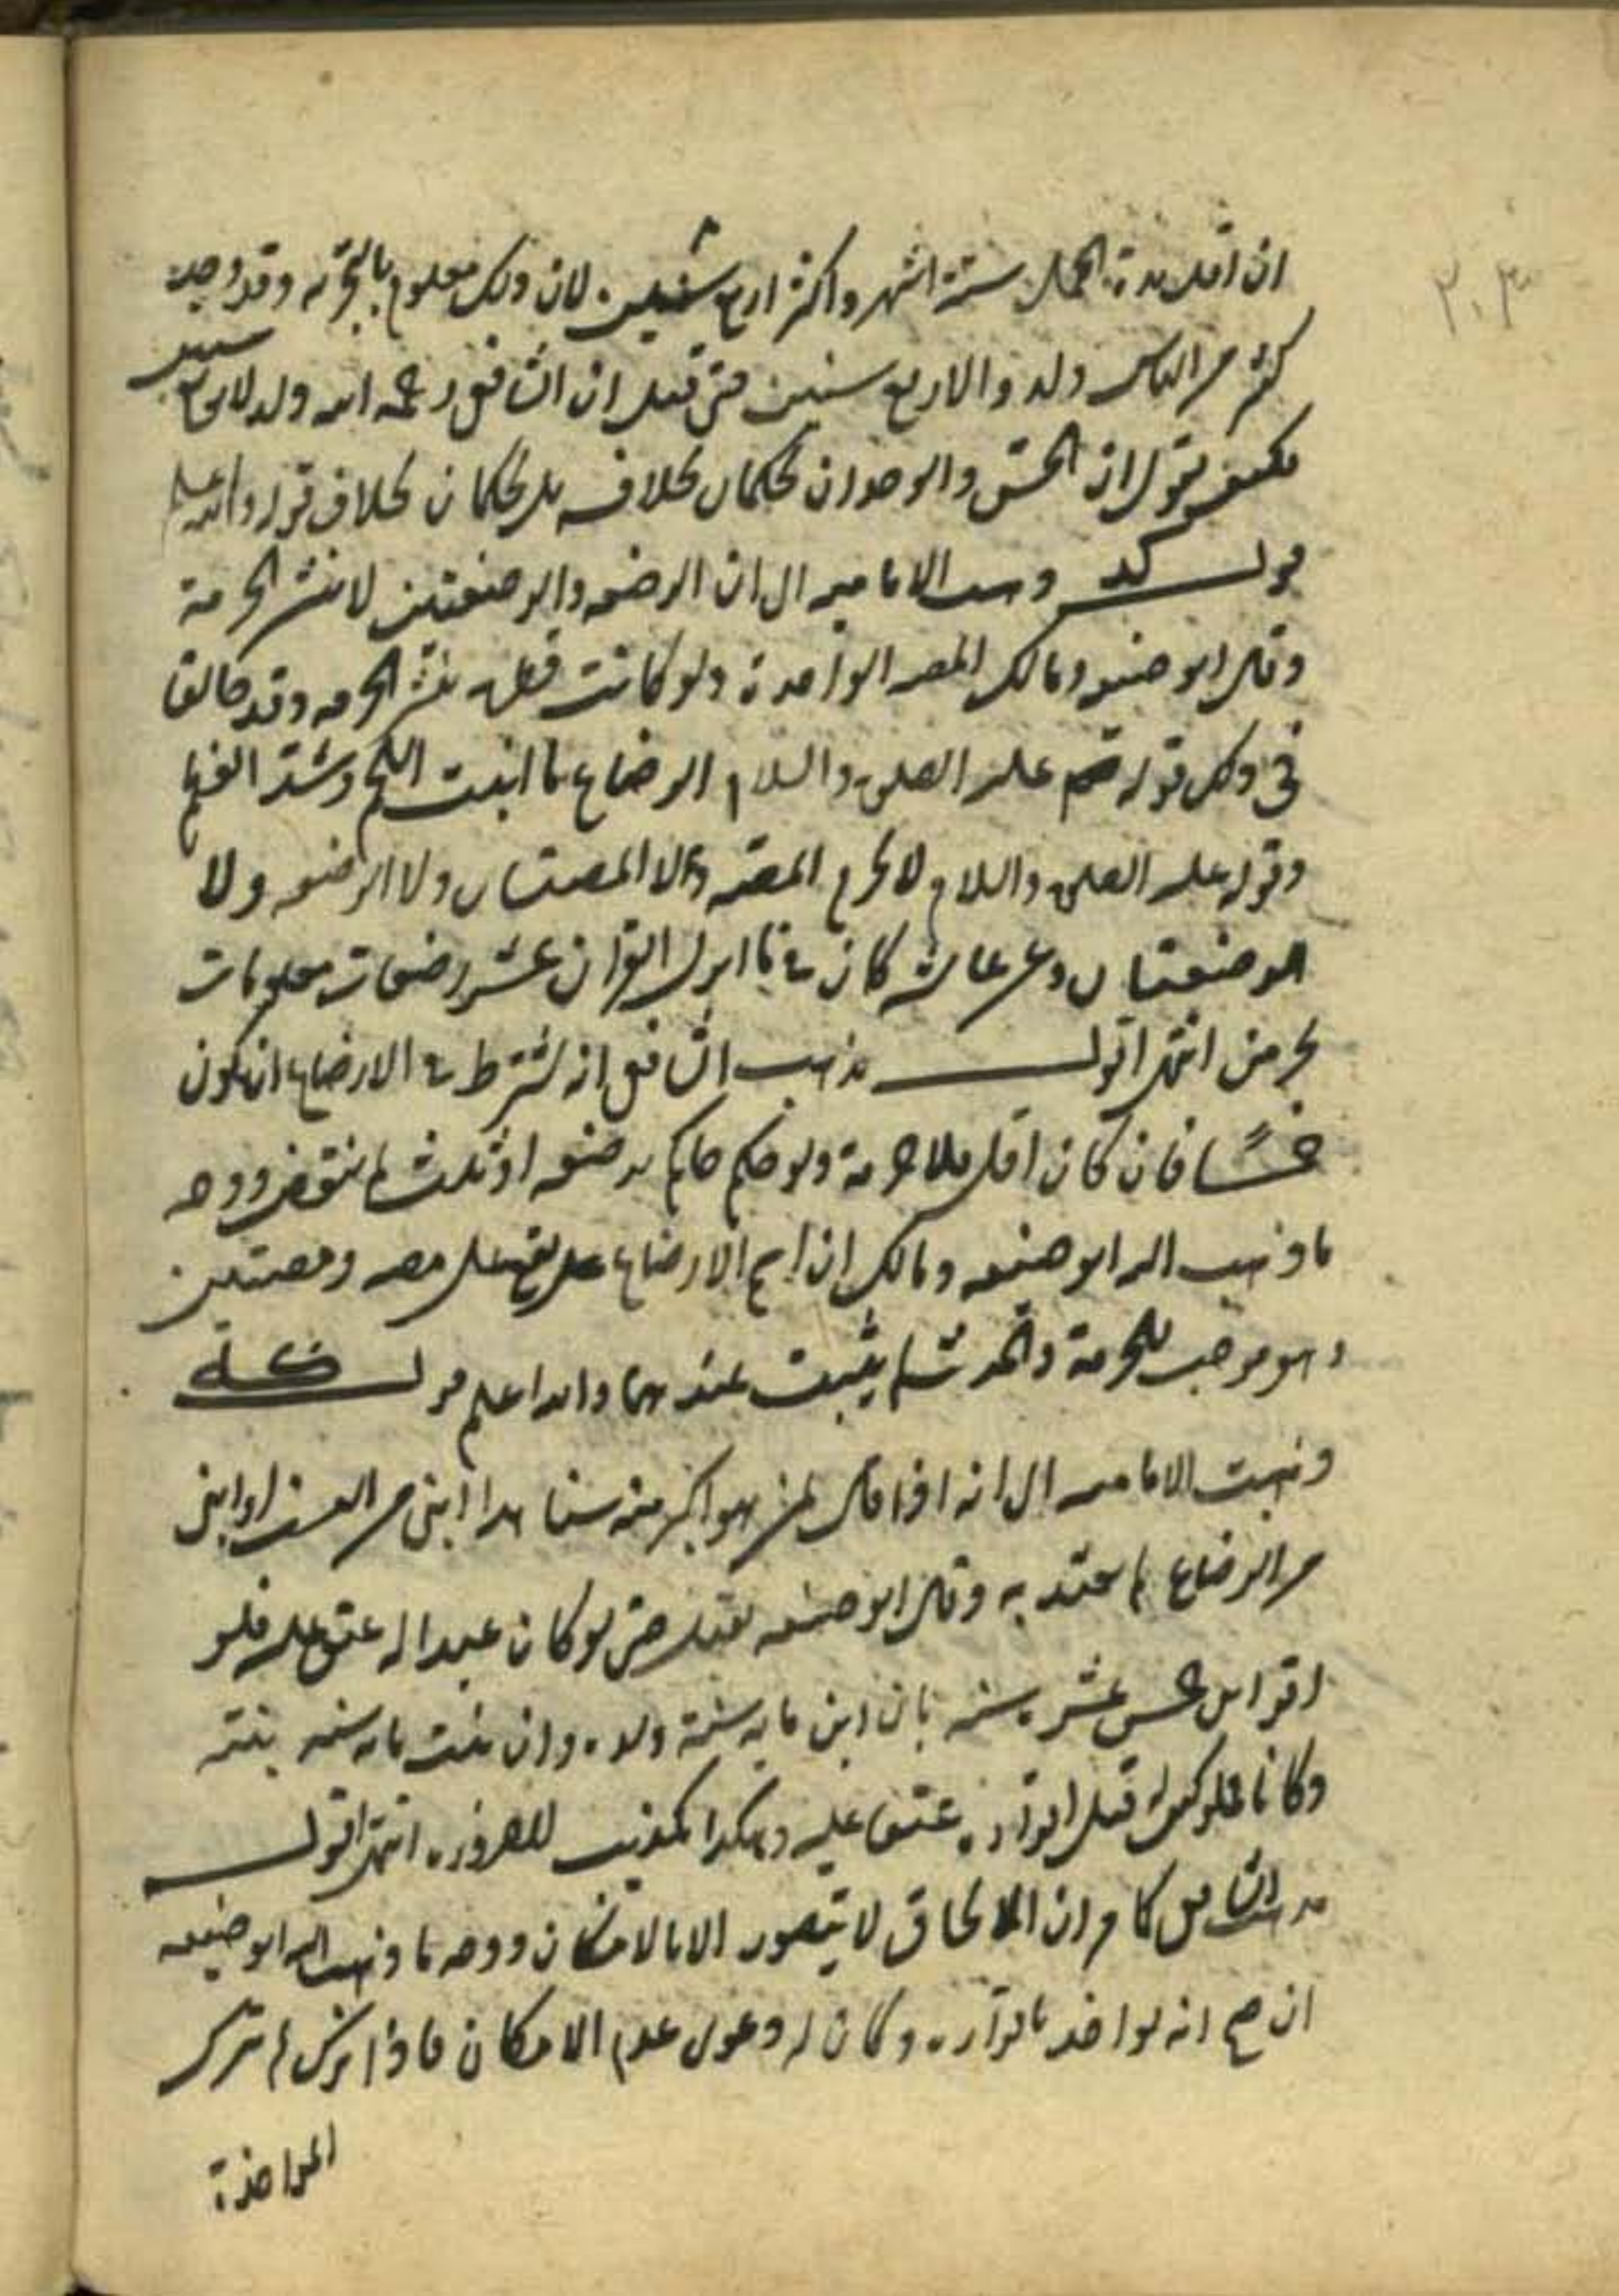 ٢٠٣
ان اقل مدة الحمل ستة اشهر واكثره اربع سنين لان ذلك معلوم بالتجربه وقد وجد
كثير من الناس ولدوا لاربع سنين حتى قيل ان الشافعي رحمه الله ولد لاربع سنين
فكيف يقول ان الحس والوجدان يحكمان بخلافه بل يحكمان بخلاف قوله والله اعلم
قوله كد وذهبت الاماميه الى ان الرضعه والرضعتين لا تنشر الحرمة
وقال ابو حنيفه ومالك المصه الواحدة ولو كانت قبل تنشر الحرمه وقد خالفا
في ذلك قوله عليه الصلوة والسلام الرضاع ما انبت اللحم وشد العظم
وقوله عليه الصلوة والسلام لا تحرم المصة ولا المصتان ولا الرضعه ولا
الرضعتان وعن عائشه كان في ما انزل القران عشر رضعات معلومات
يحرمن انتهى اقول مذهب الشافعي انه يشترط في الارضاع ان يكون
خمسًا فان كان اقل فلا حرمة ولو حكم حاكم برضعه او ثلث لم ينقض ووجه
ما ذهب اليه ابو حنيفه ومالك ان اسم الارضاع يقع على مصه ومصتين
وهو موجب للحرمة والحديث لم يثبت عندهما والله اعلم قوله كه
وذهبت الاماميه الى انه اذا قال لمن هو اكبر منه سنا هذا ابني من النسب او ابني
من الرضاع لم يعتد به وقال ابو حنيفه يقبل حتى لو كان عبدا له عتق عليه فلو
اقر ابن خمس عشر سنه بان ابن مايه سنة ولده وان بنت مايه سنه بنته
وكانا مملوكين له قبل اقراره عتقا عليه وهكذا تكذيب للضرورة انتهى اقول
مذهب الشافعي كما مر ان الالحاق لا يتصور الا بالامكان ووجه ما ذهب اليه ابو حنيفه
ان صح انه يواخذ باقراره وكان له دعوى عدم الامكان فاذا ترك لم تترك
المواخذة